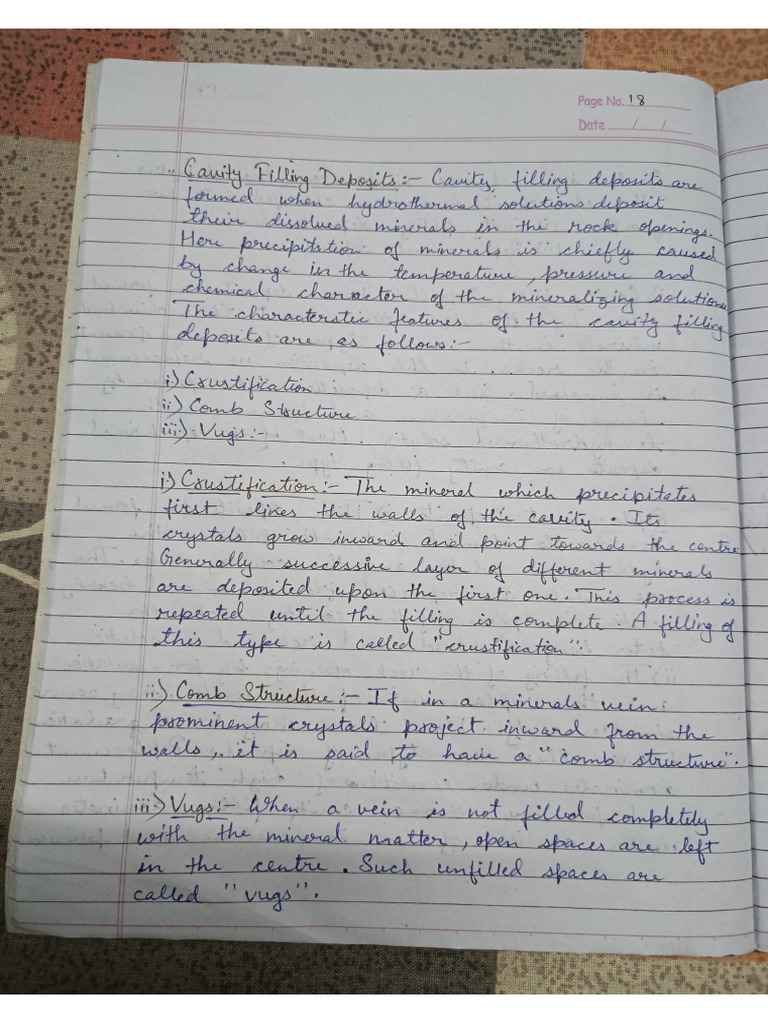 Page No. 18
Date / /
Cavity Filling Deposits:- Cavity filling deposits are
formed when hydrothermal solutions deposit
their dissolved minerals in the rock openings.
Here precipitation of minerals is chiefly caused
by change in the temperature, pressure and
chemical character of the mineralizing solutions
The characterstic features of the cavity filling
deposits are as follows:-
i) Crustification
ii) Comb Structure
iii) Vugs:-
i) Crustification:- The mineral which precipitates
first lines the walls of the cavity. Its
crystals grow inward and point towards the centre
Generally successive layer of different minerals
are deposited upon the first one. This process is
repeated until the filling is complete. A filling of
this type is called "crustification".
ii) Comb Structure:- If in a minerals vein
prominent crystals project inward from the
walls, it is said to have a "comb structure".
iii) Vugs:- When a vein is not filled completely
with the mineral matter, open spaces are left
in the centre. Such unfilled spaces are
called "vugs".